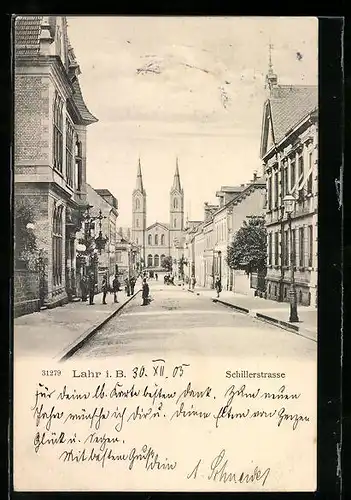 31279 Lahr i. B. 30. XII. 05 Schillerstrasse
für deine lb. Karte besten Dank. Zum neuen
Jahr wünsche ich dir u. deinen Eltern von Herzen
Glück u. Segen.
Mit besten Gruß dein A. Schneider